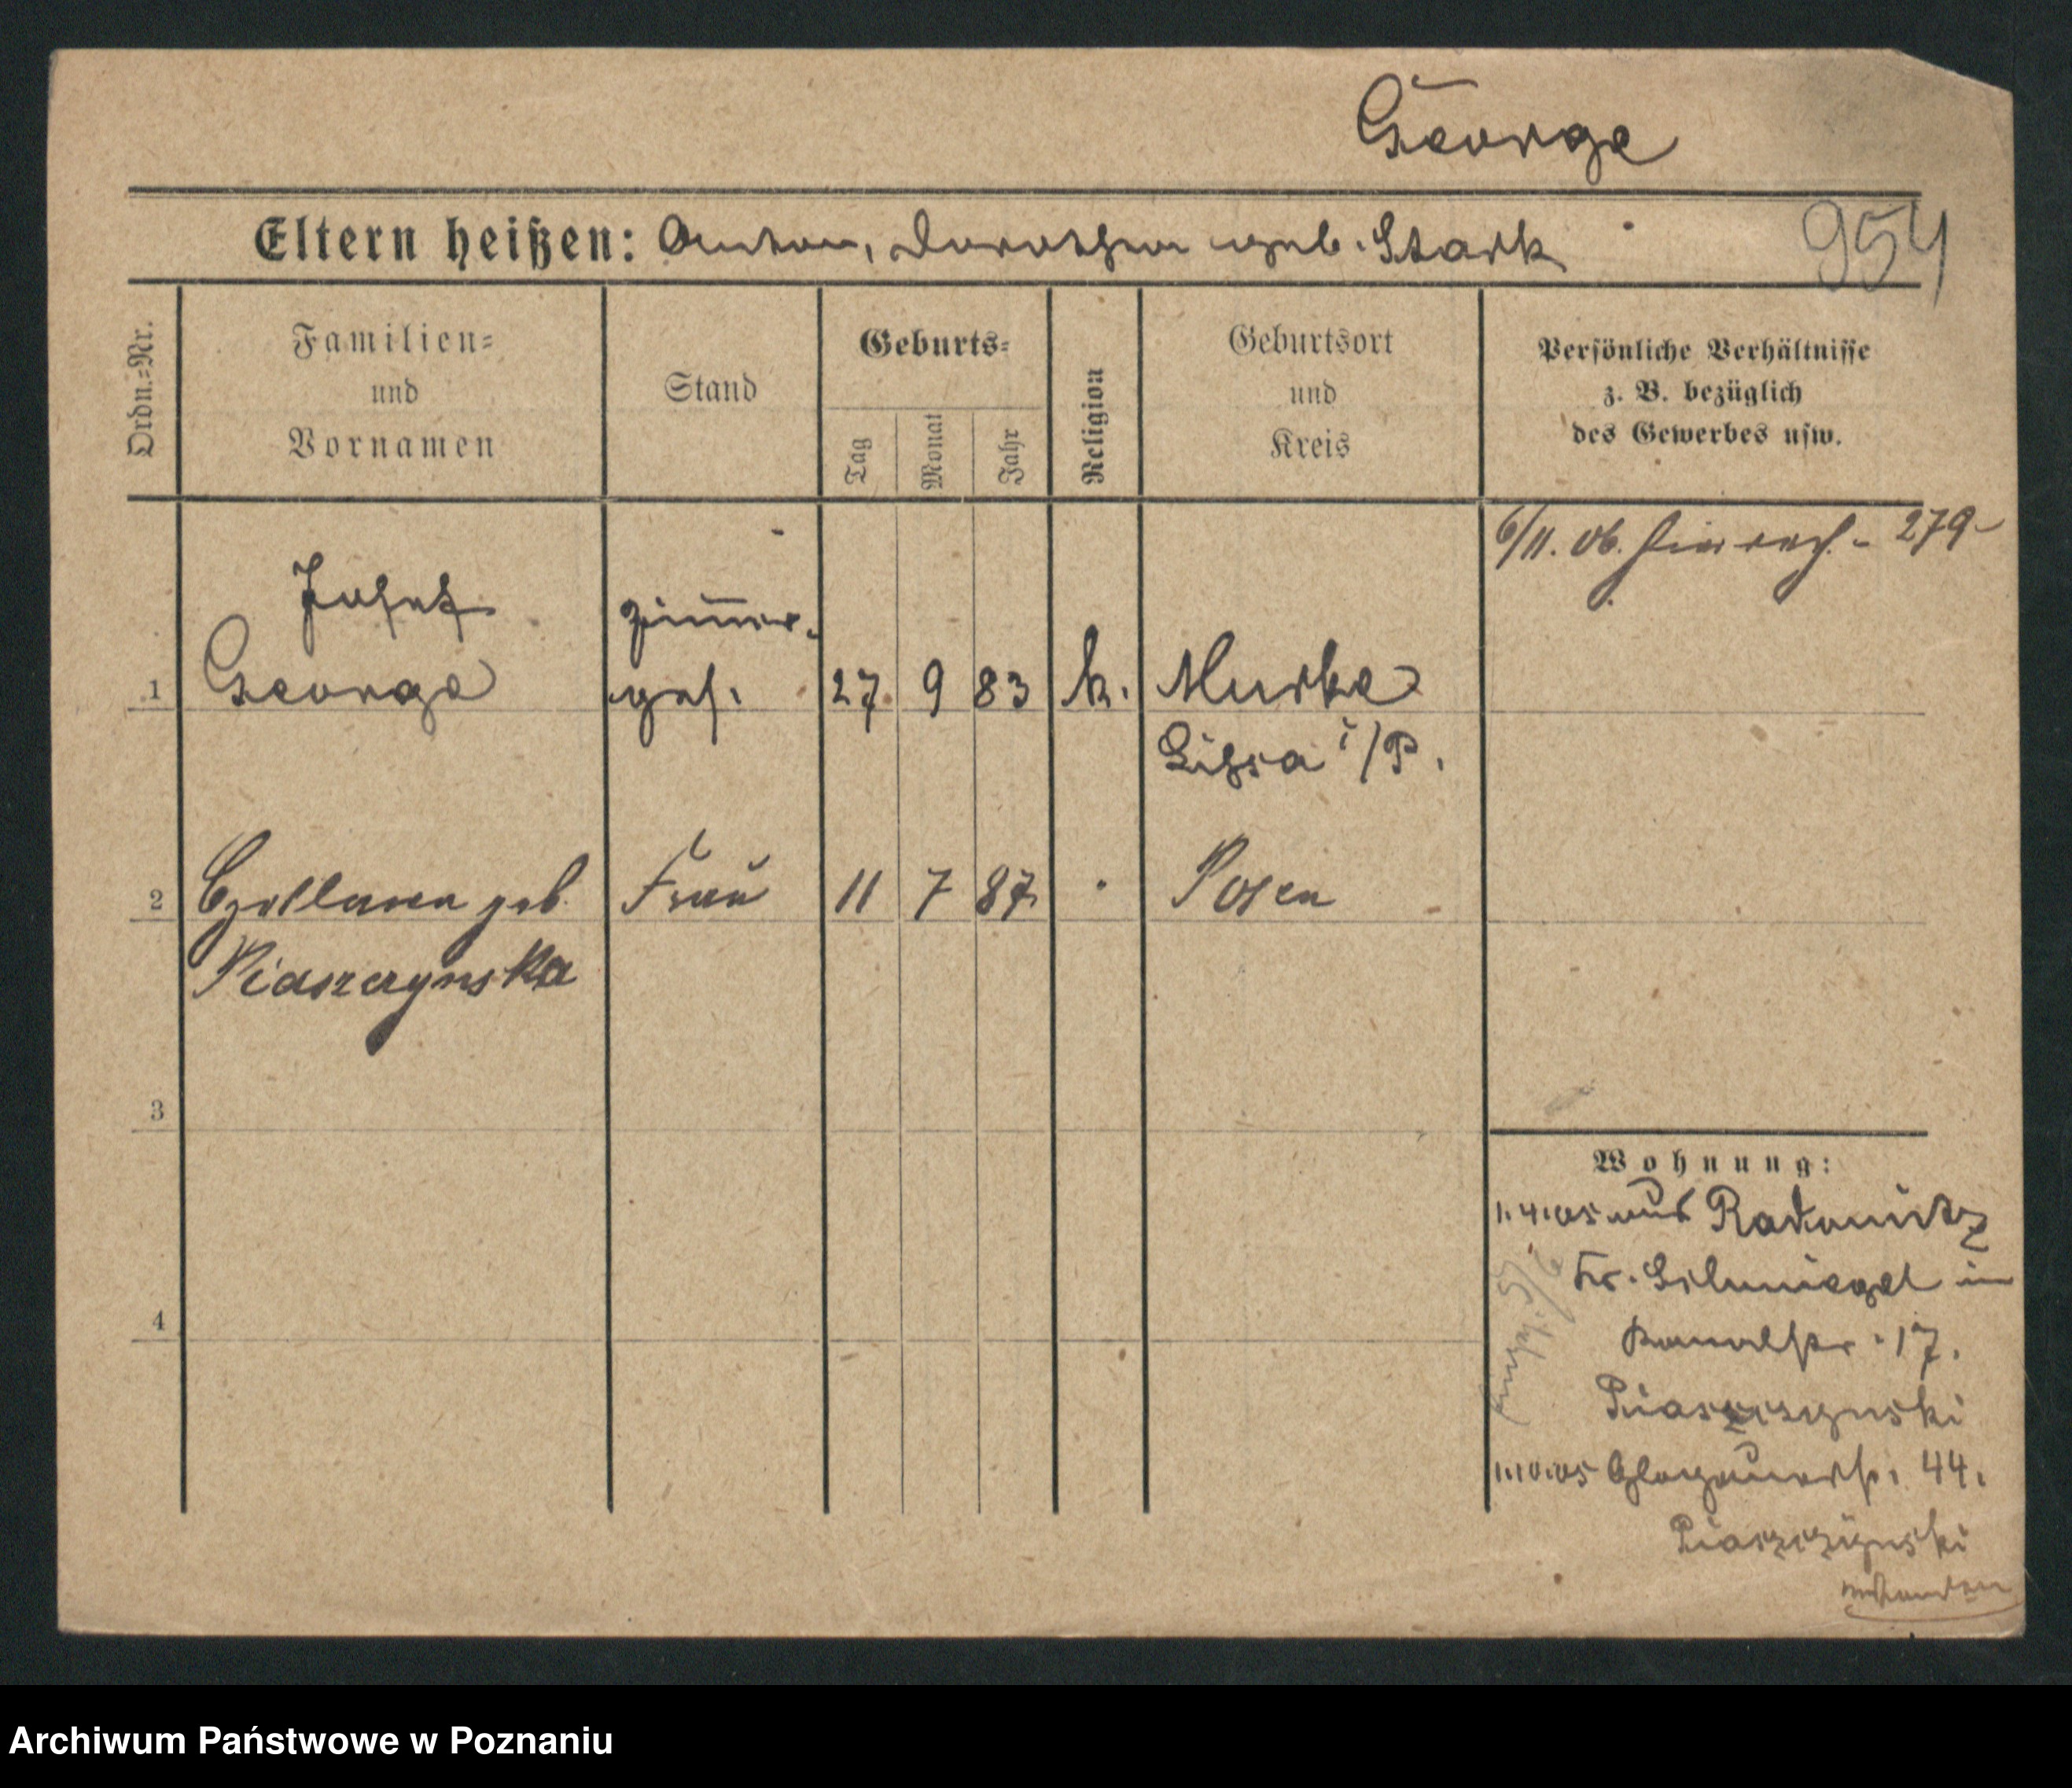 George
Eltern heißen: Anton, Dorothea geb. Stark
954
Ordn.=Nr.
Familien=
und
Vornamen
Stand
Geburts=
Tag
Monat
Jahr
Religion
Geburtsort
und
Kreis
Persönliche Verhältnisse
z. B. bezüglich
des Gewerbes usw.
6/11. 06. - 279-
Josef
George
Zimmer-
ges.
1
27. 9 83
k.
Murke
Lissa i/P.
2
geb.
Piaszczynska
Frau
11 7 87
Posen
3
4
Wohnung:
1.4.05 aus Radomitz
Kr. Schmiegel in
Kanalstr. 17.
Piaszczynski
1.10.05 Glogauerstr. 44.
Piaszczynski
Archiwum Państwowe w Poznaniu